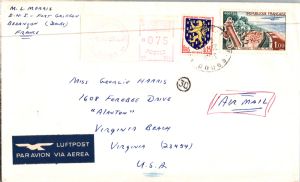 M. L. MORRIS
S.N.S - FORT GRIFFON
BESANÇON (DOUBS)
FRANCE
0.75
RÉPUBLIQUE FRANÇAISE
1.00
MISS GEORGIA HARRIS
1608 FEREBEE DRIVE
VIRGINIA BEACH
VIRGINIA (23454)
U.S.A
AIR MAIL
LUFTPOST
PAR AVION VIA AEREA